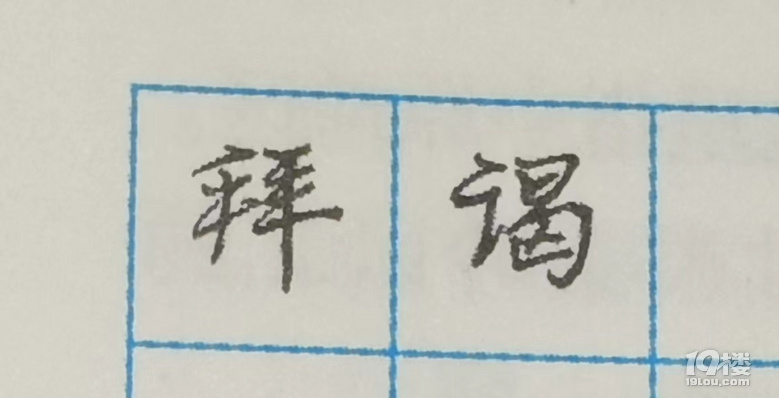 拜谒
19楼
19lou.com